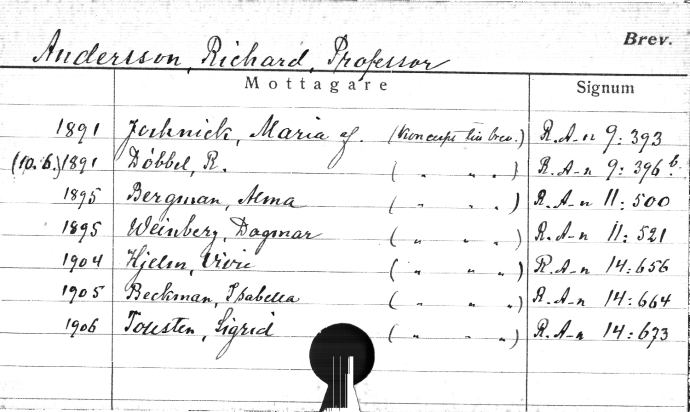 Brev.
Andersson, Richard, Professor
Mottagare Signum
1891 Jochnick, Maria af. (Koncept till brev.) R. A-n 9:393
(10.6.) 1891 Döbbel, R. ( " " " ) R. A-n 9:396 b.
1895 Bergman, Alma ( " " " ) R. A-n 11:500
1895 Weinberg, Dagmar ( " " " ) R. A-n 11:521
1904 Hjelm, Vivi ( " " " ) R. A-n 14:656
1905 Beckman, Isabella ( " " " ) R. A-n 14:664
1906 Sigrid ( " " " ) R. A-n 14:673